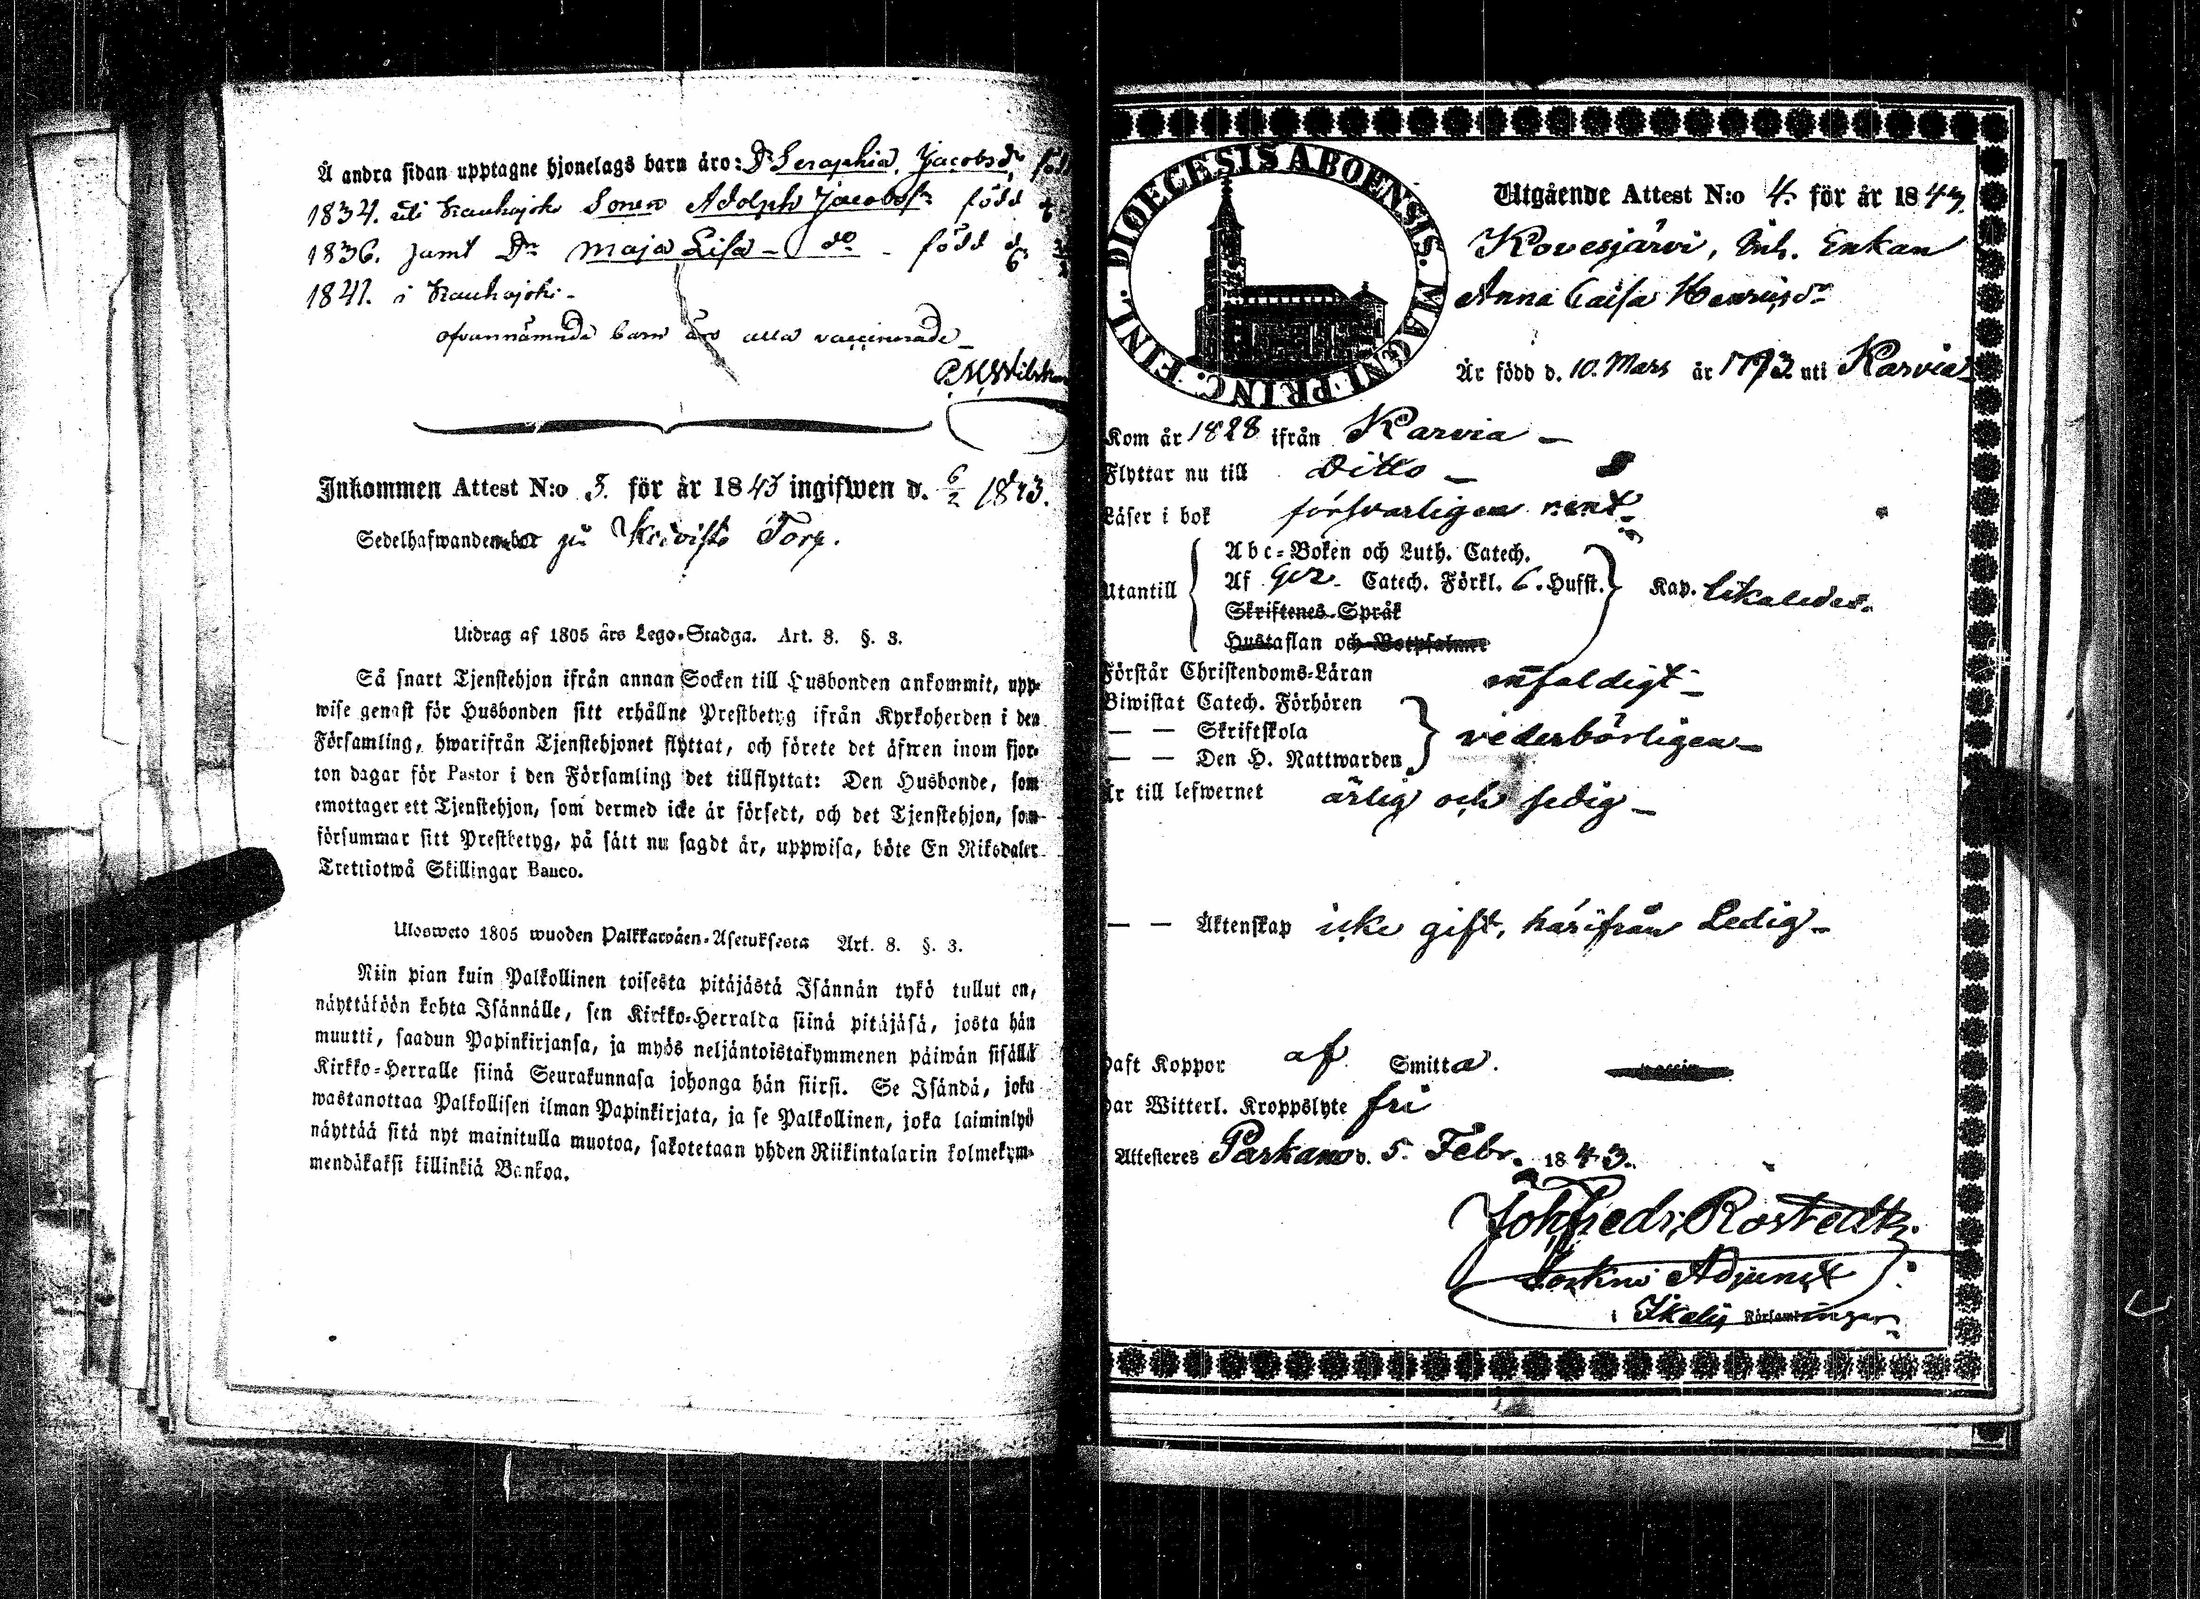 Å andra sidan upptagne hjonelags barn äro: Dr Seraphia Jacobsdr född
1834. uti Kauhajoki Sonen Adolph Jacobss. född
1836. samt Dr Maja Lisa - do - född d.
1841. i Kauhajoki.
ofvannämnde barn äro alla vaccinerade
Inkommen Attest N:o 5. för år 1843 ingifwen d. 6/2 1843.
Sedelhafwanden på Torp.
Utdrag af 1805 års Lego-Stadga. Art. 8. §. 3.
Så snart Tjenstehjon ifrån annan Socken till Husbonden ankommit, upp-
wise genast för Husbonden sitt erhållne Prestbetyg ifrån Kyrkoherden i den
Församling, hwarifrån Tjenstehjonet flyttat, och förete det äfwen inom fjor-
ton dagar för Pastor i den Församling det tillflyttat: Den Husbonde, som
emottager ett Tjenstehjon, som dermed icke är försedt, och det Tjenstehjon, som
försummar sitt Prestbetyg, på sätt nu sagdt är, uppwisa, böte En Riksdaler
Trettiotwå Skillingar Banco.
Ulosweto 1805 wuoden Palkkawäen-Asetuksesta Art. 8. §. 3.
Niin pian kuin Palkollinen toisesta pitäjästä Isännän tykö tullut on,
näyttäköön kohta Isännälle, sen Kirkko-Herralda siinä pitäjäsä, josta hän
muutti, saadun Papinkirjansa, ja myös neljäntoistakymmenen päiwän sisällä
Kirkko-Herralle siinä Seurakunnasa johonga hän siirsi. Se Isändä, joka
wastanottaa Palkollisen ilman Papinkirjata, ja se Palkollinen, joka laiminlyö
näyttää sitä nyt mainitulla muotoa, sakotetaan yhden Riikintalarin kolmekym-
mendäkaksi killinkiä Bankoa.
DIOECESIS ABOENSIS. MAGNI PRINC. FINL.
Utgående Attest N:o 4. för år 1843.
Kovesjärvi, Inh. Enkan
Anna Caisa Henricsdr
Är född d. 10. Mars år 1793 uti Karvia
Kom år 1828 ifrån Karvia
Flyttar nu till Ditto
Läser i bok försvarligen rent
Utantill
Abc-Boken och Luth. Catech.
Af Catech. Förkl. 6. Hufst. Kap. likaledes.
Skriftenes Språk
Hustaflan och Botpsalmer
Förstår Christendoms-Läran enfaldigt
Biwistat Catech. Förhören
— — Skriftskola
— — Den H. Nattwarden vederbörligen
Är till lefwernet ärlig och sedig
— — Äktenskap icke gift, härifrån Ledig
Haft Koppor af Smitta.
Har Witterl. Kroppslyte fri
Attesteres Parkano d. 5. Febr. 1843.
Joh. Fredr. Rostedt
Adjunct
i Ikalis Församlingar